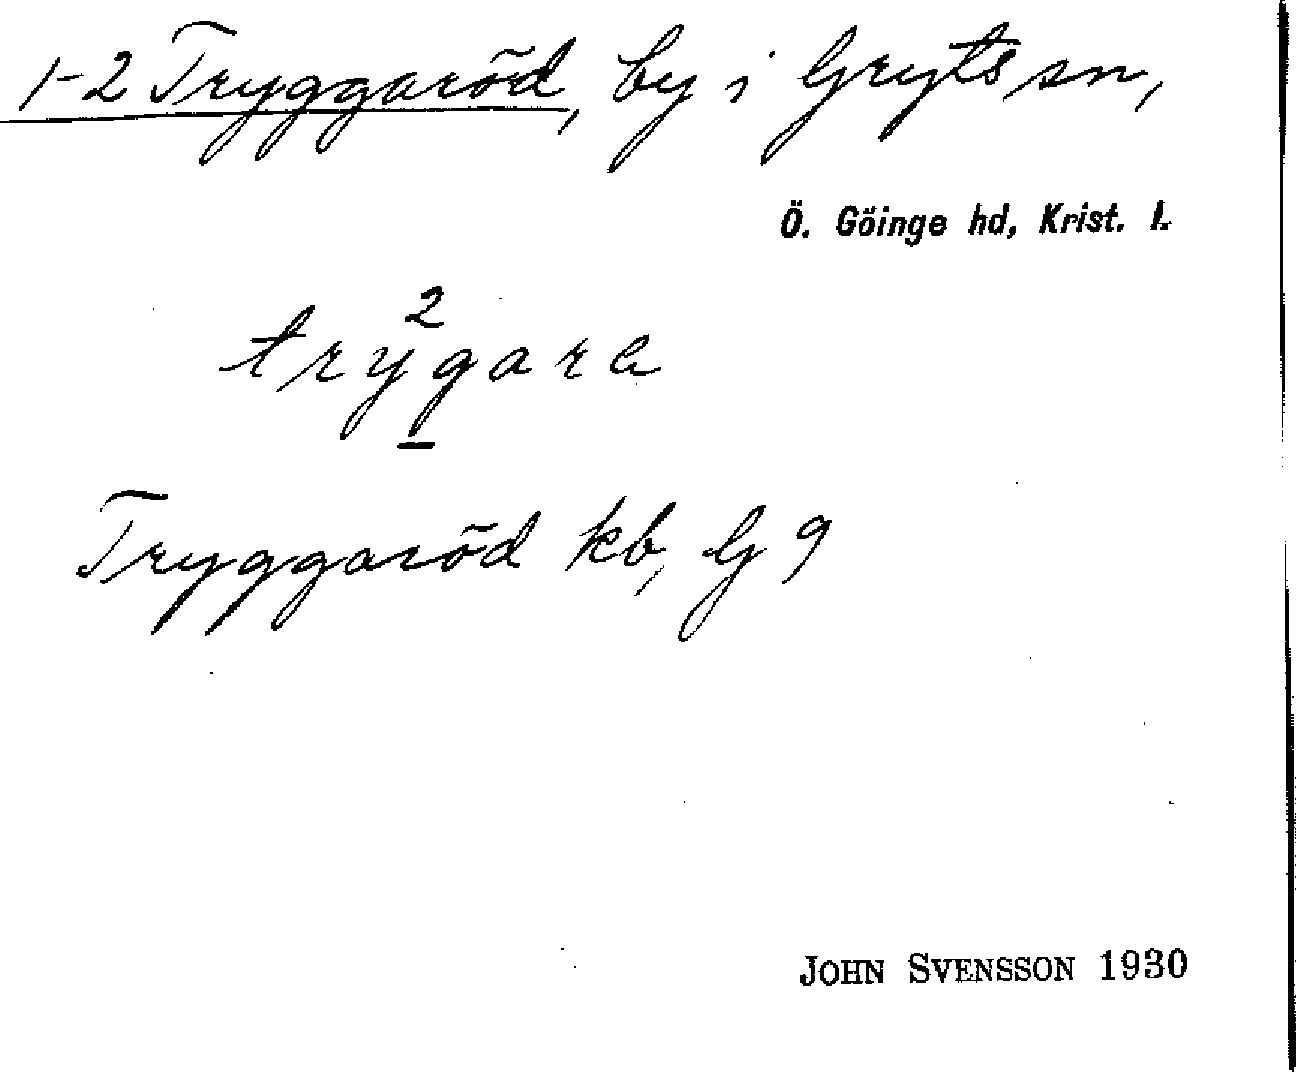 1-2 Tryggaröd, by i Gryts sn,
Ö. Göinge hd, Krist. l.
2
trygara
Tryggaröd kb, G 9
JOHN SVENSSON 1930